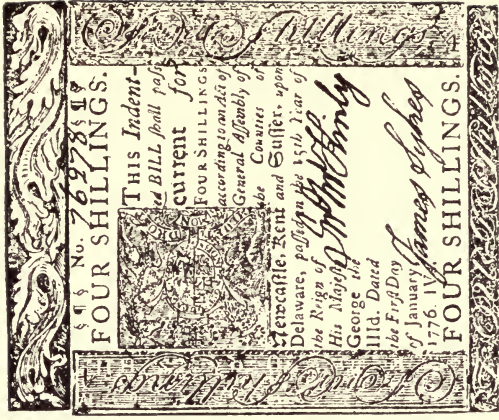 §¶§ No. 76978 §¶§
FOUR SHILLINGS.
THIS Indent-
ed BILL ſhall paſs
current for
FOUR SHILLINGS
according to an Act of
General Aſſembly of
the Counties of
Newcaſtle, Kent and Suſſex, upon
Delaware, paſſed in the 15th Year of
the Reign of
His Majeſty
George the
IIId. Dated
the Firſt Day
of January
1776.
McKinly
James Sykes
FOUR SHILLINGS.
Shillings
Shillings